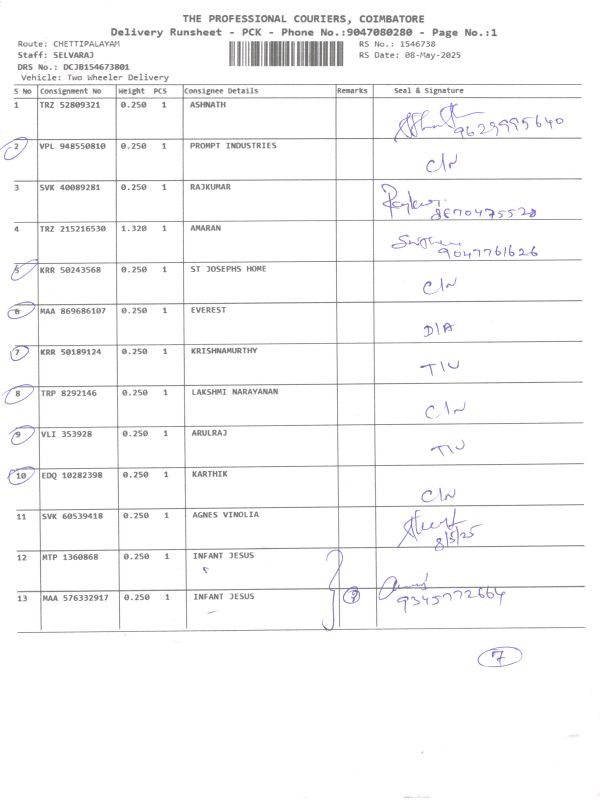 THE PROFESSIONAL COURIERS, COIMBATORE
Delivery Runsheet - PCK - Phone No.:9047080280 - Page No.:1
Route: CHETTIPALAYAM RS No.: 1546738
Staff: SELVARAJ RS Date: 08-May-2025
DRS No.: DCJB154673801
Vehicle: Two Wheeler Delivery
S No Consignment No Weight PCS Consignee Details Remarks Seal & Signature
1 TRZ 52809321 0.250 1 ASHNATH
9629995640
2 VPL 948550810 0.250 1 PROMPT INDUSTRIES
C/N
3 SVK 40089281 0.250 1 RAJKUMAR
8870475528
4 TRZ 215216530 1.320 1 AMARAN
9047761626
5 KRR 50243568 0.250 1 ST JOSEPHS HOME
C/N
6 MAA 869686107 0.250 1 EVEREST
D/A
7 KRR 50189124 0.250 1 KRISHNAMURTHY
T/U
8 TRP 8292146 0.250 1 LAKSHMI NARAYANAN
C/N
9 VLI 353928 0.250 1 ARULRAJ
T/U
10 EDQ 10282398 0.250 1 KARTHIK
C/N
11 SVK 60539418 0.250 1 AGNES VINOLIA
8/5/25
12 MTP 1360868 0.250 1 INFANT JESUS
13 MAA 576332917 0.250 1 INFANT JESUS
9345772664
7